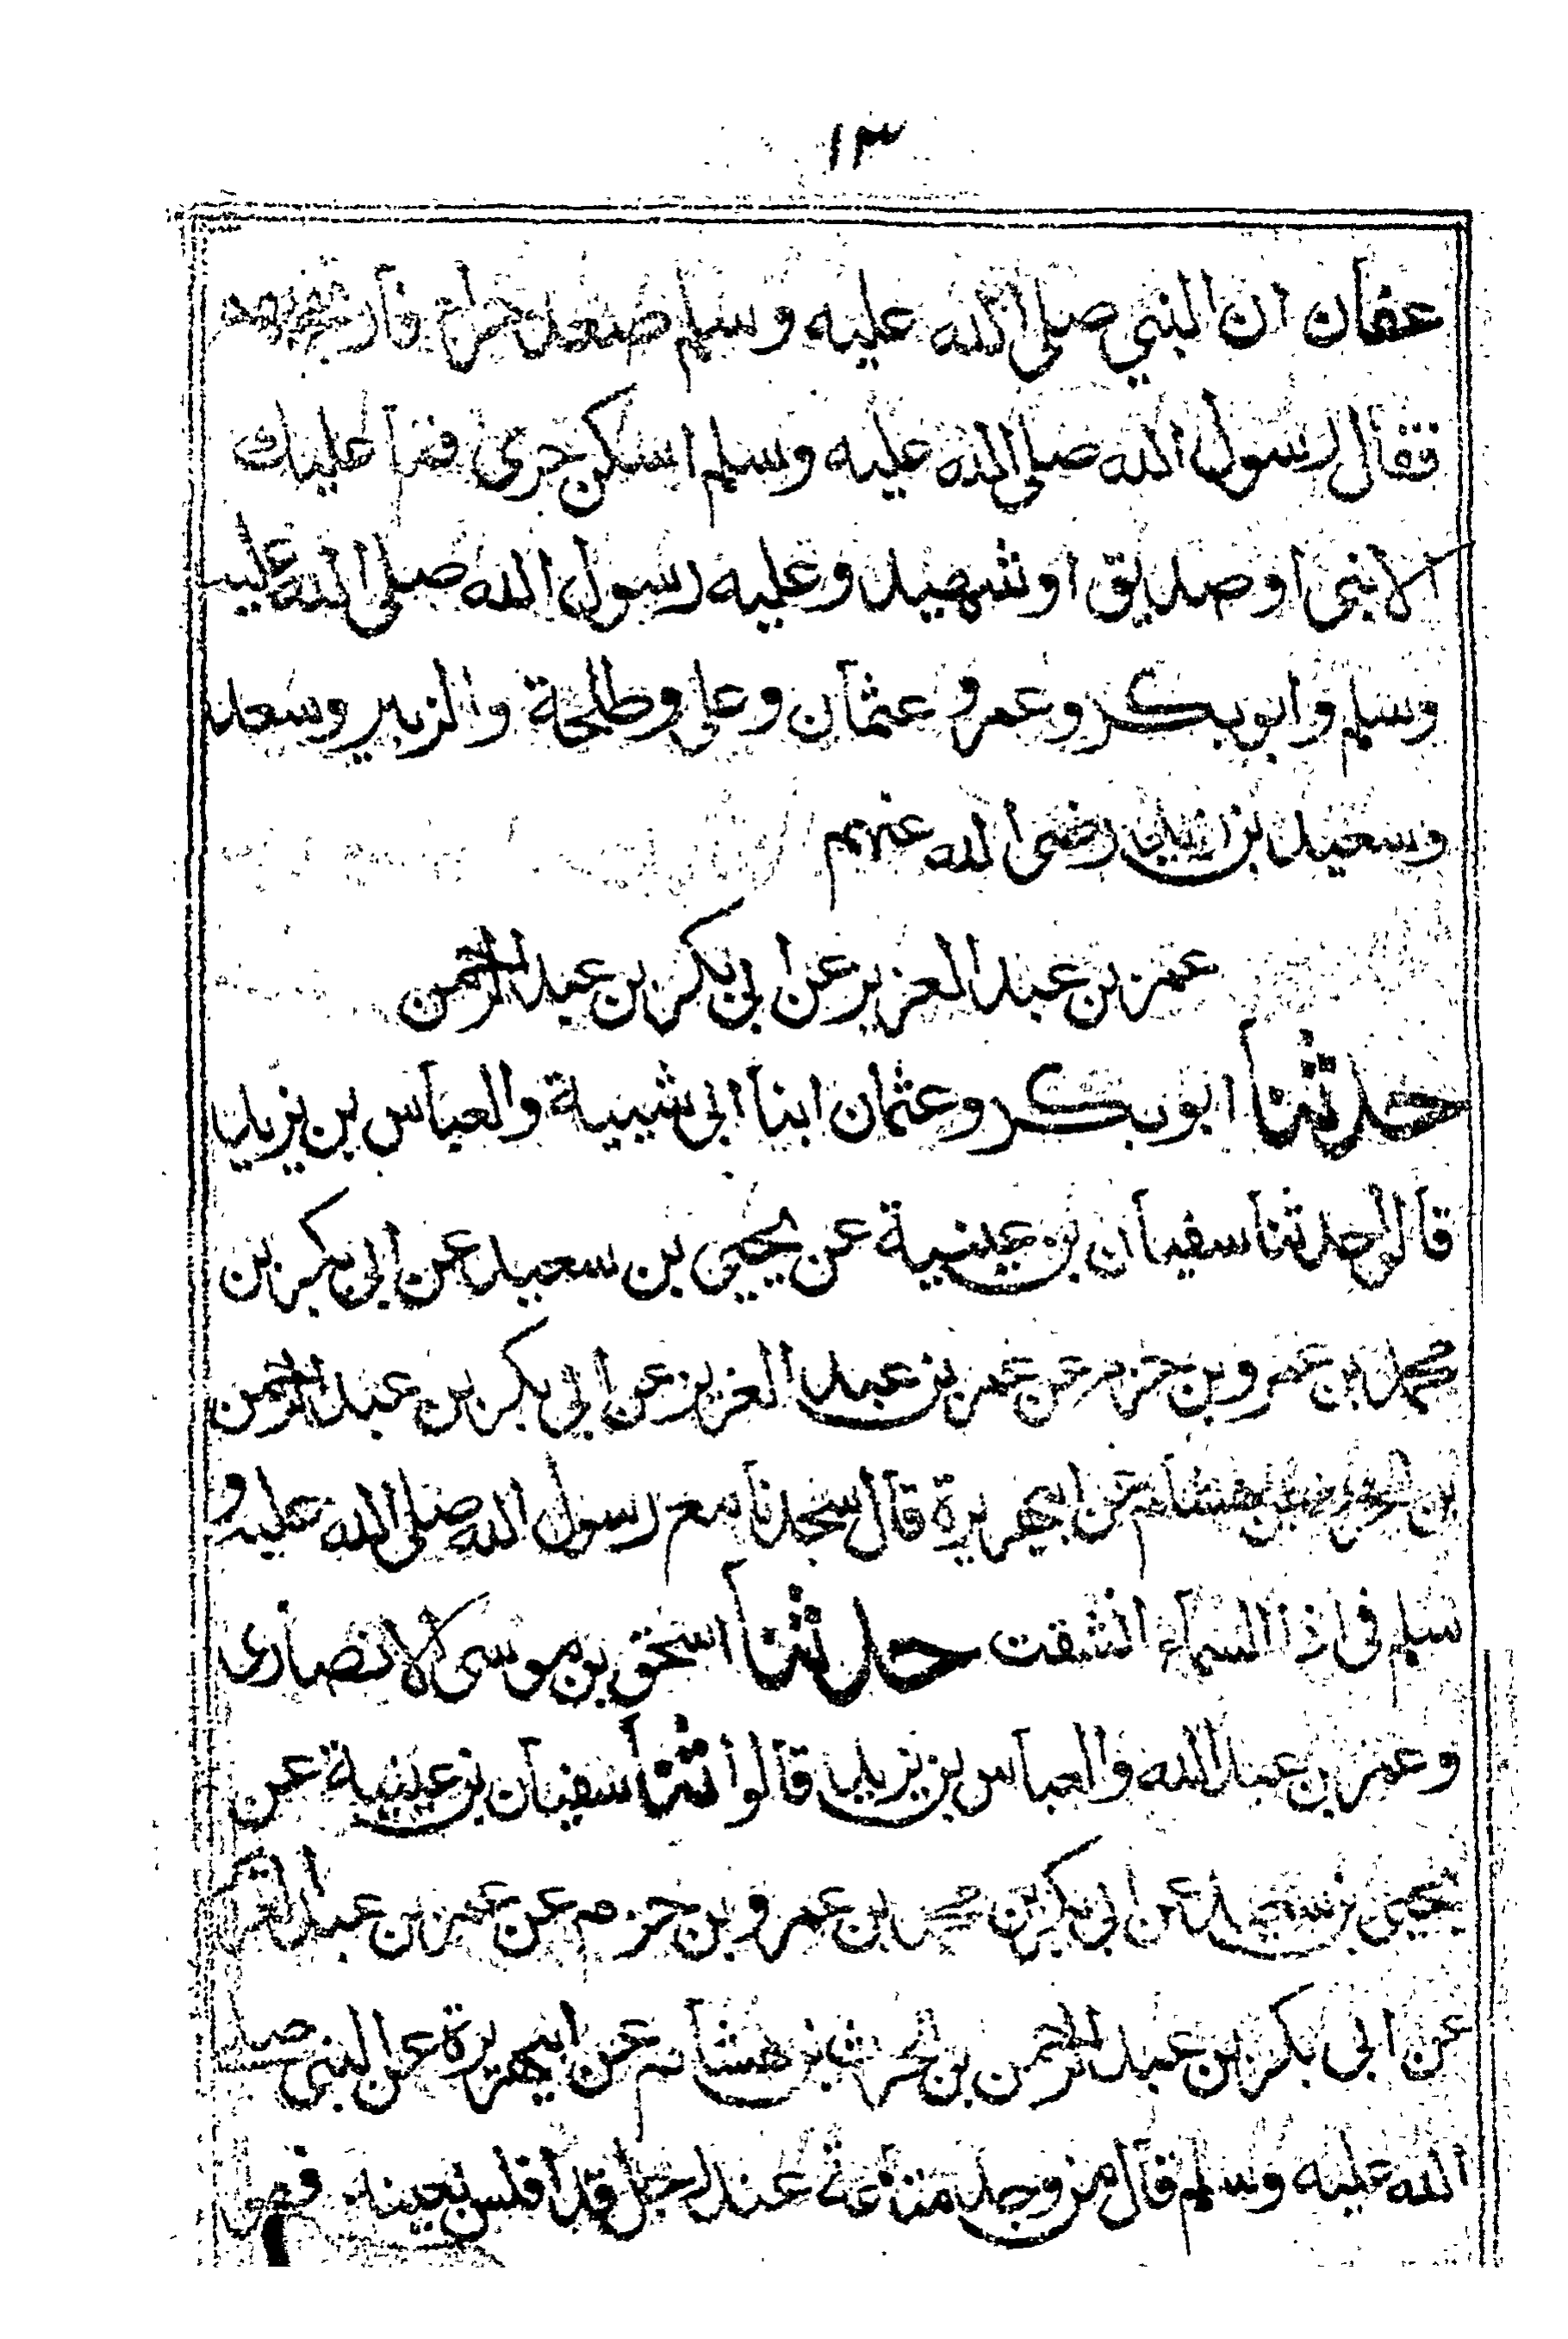 ١٣
عفان ان النبي صلى الله عليه وسلم صعد حراء فارتج بهم
فقال رسول الله صلى الله عليه وسلم اسكن حرى فما عليك
الا نبي او صديق او شهيد وعليه رسول الله صلى الله عليه
وسلم وابو بكر وعمر وعثمان وعلي وطلحة والزبير وسعد
وسعيد بن زيد رضى الله عنهم
عمر بن عبد العزيز عن ابي بكر بن عبد الرحمن
حدثنا ابو بكر وعثمان ابنا ابي شيبة والعباس بن يزيد
قالوا حدثنا سفيان بن عيينة عن يحيى بن سعيد عن ابي بكر بن
محمد بن عمرو بن حزم عن عمر بن عبد العزيز عن ابي بكر بن عبد الرحمن
بن الحرث بن هشام عن ابي هريرة قال سجدنا مع رسول الله صلى الله عليه و
سلم في اذا السماء انشقت حدثنا اسحق بن موسى الانصارى
وعمر بن عبد الله والعباس بن يزيد قالوا ثنا سفيان بن عيينة عن
يحيى بن سعيد عن ابي بكر بن محمد بن عمرو بن حزم عن عمر بن عبد العزيز
عن ابي بكر بن عبد الرحمن بن الحرث بن هشام عن ابي هريرة عن النبي صلى
الله عليه وسلم قال من وجد متاعه عند رجل قد افلس بعينه فهو